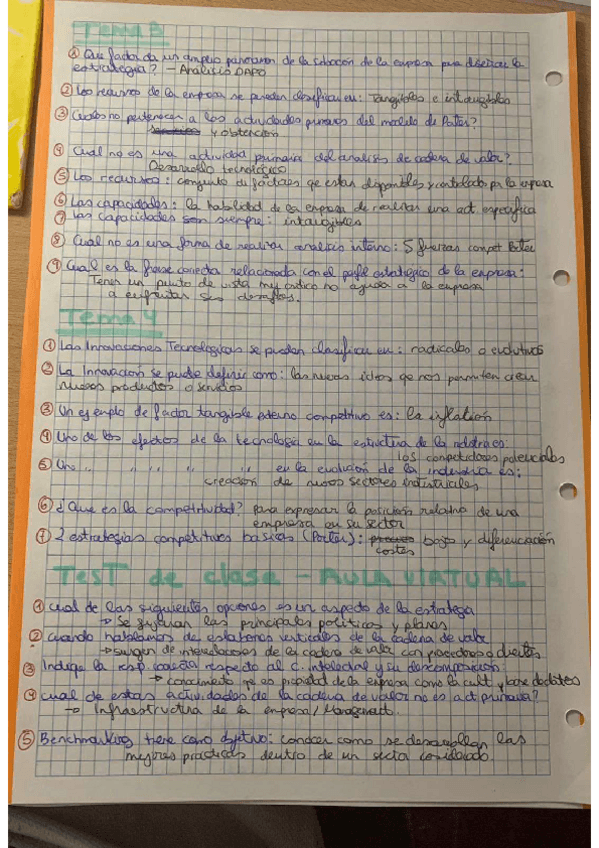 Tema 3
① Que factor da un amplio panorama de la situación de la empresa para diseñar la
estrategia? - Analisis DAFO
② Los recursos de la empresa se pueden clasificar en: Tangibles e intangibles
③ Cuales no pertenecen a las actividades primarias del modelo de Porter?
y obtención
④ Cual no es una actividad primaria del analisis de cadena de valor?
Desarrollo tecnológico
⑤ Los recursos: conjunto de factores que estan disponibles y controlados por la empresa
⑥ Las capacidades: la habilidad de la empresa de realizar una act. especifica
⑦ Las capacidades son siempre: intangibles
⑧ Cual no es una forma de realizar analisis interno: 5 fuerzas compet Porter
⑨ Cual es la frase correcta relacionada con el perfil estrategico de la empresa:
Tener un punto de vista muy critico no ayuda a la empresa
a enfrentar sus desafios.
Tema 4
① Las Innovaciones Tecnologicas se pueden clasificar en: radicales o evolutivas
② La Innovacion se puede definir como: las nuevas ideas que nos permiten crear
nuevos productos o servicios
③ Un ejemplo de factor tangible externo competitivo es: la inflation
④ Uno de los efectos de la tecnología en la estructura de la es:
los competidores potenciales
⑤ Uno " " " " " en la evolución de la industria es:
creacion de nuevos sectores industriales
⑥ ¿Que es la competitividad? para expresar la posicion relativa de una
empresa en su sector
⑦ 2 estrategias competitivas basicas (Porter): bajos y diferenciación
costes
TEST de clase - AULA VIRTUAL
① Cual de las siguientes opciones es un aspecto de la estrategia
→ Se fijaran las principales politicas y planes
② Cuando hablamos de eslabones verticales de la cadena de valor
→ surgen de interrelaciones de la cadena de valor con proveedores o clientes
③ Indique la resp. correcta respecto al C. intelectual y su descomposicion:
→ conocimiento que es propiedad de la empresa como la cult y base de datos
④ cual de estas actividades de la cadena de valor no es act primaria?
→ Infraestructura de la empresa / Management.
⑤ Benchmarking tiene como objetivo: conocer como se desarrollan las
mejores practicas dentro de un sector considerado.